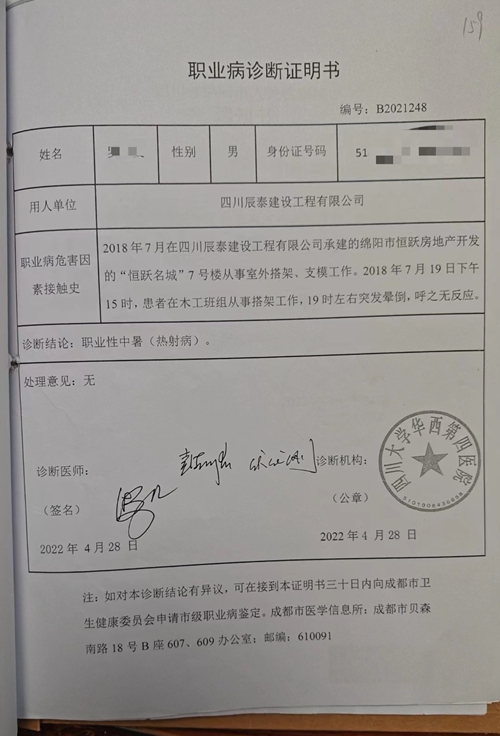 159
职业病诊断证明书
编号：B2021248
姓名 性别 男 身份证号码 51
用人单位 四川辰泰建设工程有限公司
职业病危害因素接触史
2018 年 7 月在四川辰泰建设工程有限公司承建的绵阳市恒跃房地产开发
的“恒跃名城”7 号楼从事室外搭架、支模工作。2018 年 7 月 19 日下午
15 时，患者在木工班组从事搭架工作，19 时左右突发晕倒，呼之无反应。
诊断结论：职业性中暑（热射病）。
处理意见：无
诊断医师：
（签名）
2022 年 4 月 28 日
诊断机构：
（公章）
四川大学华西第四医院
2022 年 4 月 28 日
注：如对本诊断结论有异议，可在接到本证明书三十日内向成都市卫
生健康委员会申请市级职业病鉴定。成都市医学信息所：成都市贝森
南路 18 号 B 座 607、609 办公室；邮编：610091